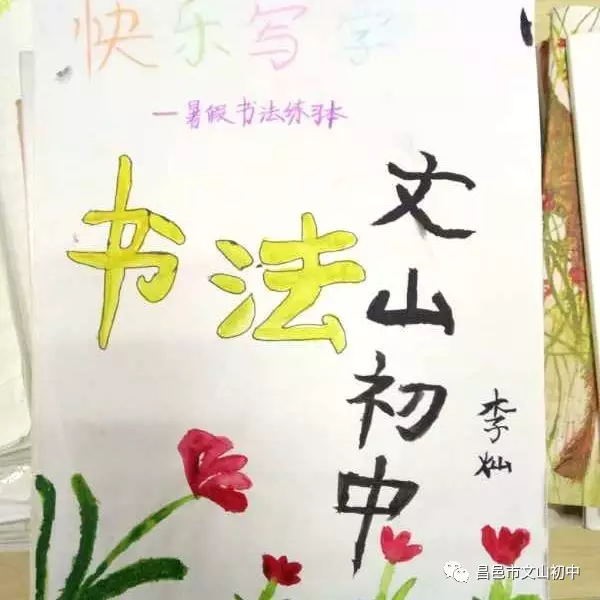 快乐写字
一暑假书法练习本
书法
文山初中
李灿
昌邑市文山初中